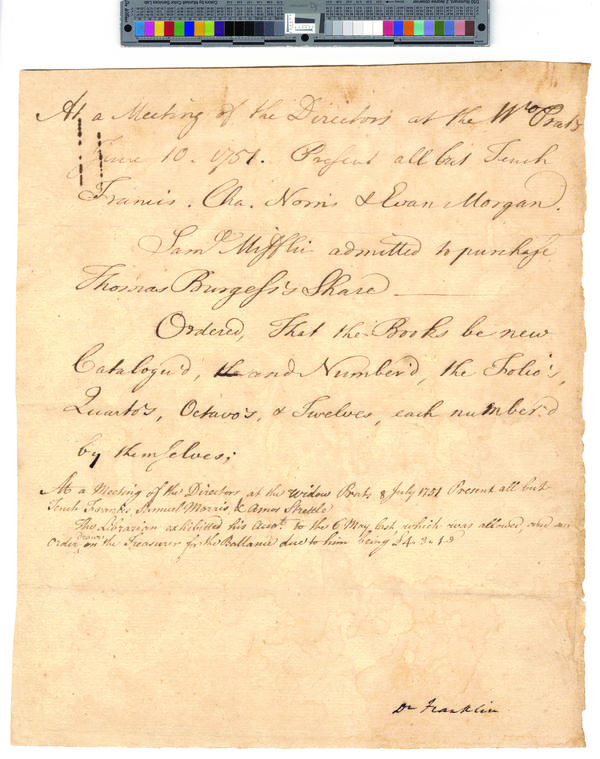 At a Meeting of the Directors at the Wo Prats
June 10. 1751. Present all but Tench
Francis. Cha. Norris & Evan Morgan.
Saml Mifflin admitted to purchase
Thomas Burgess's Share
Ordered, That the Books be new
Catalogu'd, the and Number'd, the Folio's,
Quarto's, Octavo's, & Twelves, each number'd
by themselves;
At a Meeting of the Directors, at the Widow Prats 8 July 1751 Present all but
Tench Francis, Samuel Morris & Amos Strettle
The Librarian exhibitted his Accot. to the 6 May last which was allowed, and an
Order drawn on the Treasurer for the Ballance due to him being £4..3..1.
Dr Franklin